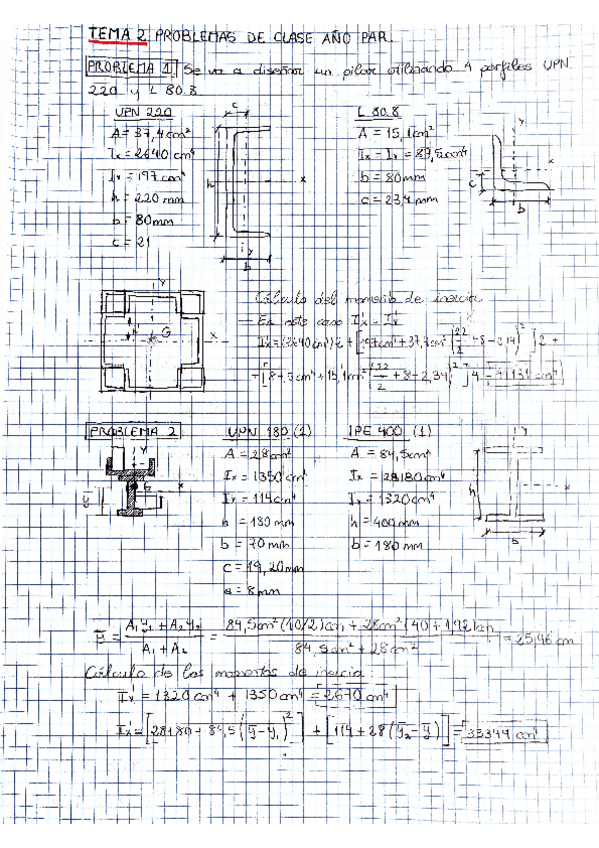 TEMA 2 PROBLEMAS DE CLASE AÑO PAR.
PROBLEMA 1 Se va a diseñar un pilar utilizando 4 perfiles UPN
220 y L 80.8
UPN 220
A = 37,4cm²
Ix = 2640 cm⁴
Iy = 197 cm⁴
h = 220 mm
b = 80mm
c = 21
c
h
x
y
b
L 80.8
A = 15,1cm²
Ix = Iy = 87,5cm⁴
b = 80mm
c = 23,4 mm
y
x
c
b
y
G
x
Cálculo del momento de inercia
- En este caso Ix' = Iy'
PROBLEMA 2
y
G
x
UPN 180 (1)
A = 28cm²
Ix = 1350 cm⁴
Iy = 114cm⁴
h = 180 mm
b = 70 mm
c = 19,20mm
e = 8mm
IPE 400 (1)
A = 84,5cm²
Ix = 28180cm⁴
Iy = 1320cm⁴
h = 400 mm
b = 180 mm
y
h
x
b
ȳ = A₁y₁ + A₂y₂ / A₁ + A₂ = 84,5cm² (40/2)cm + 28cm² (40 + 1,92)cm / 84,5cm² + 28cm² = 25,46 cm
Cálculo de los momentos de inercia:
Iy' = 1320cm⁴ + 1350 cm⁴ = 2670 cm⁴
Ix' = [28180 + 84,5 (ȳ-y₁)²] + [114 + 28 (y₂-ȳ)] = 33344 cm⁴